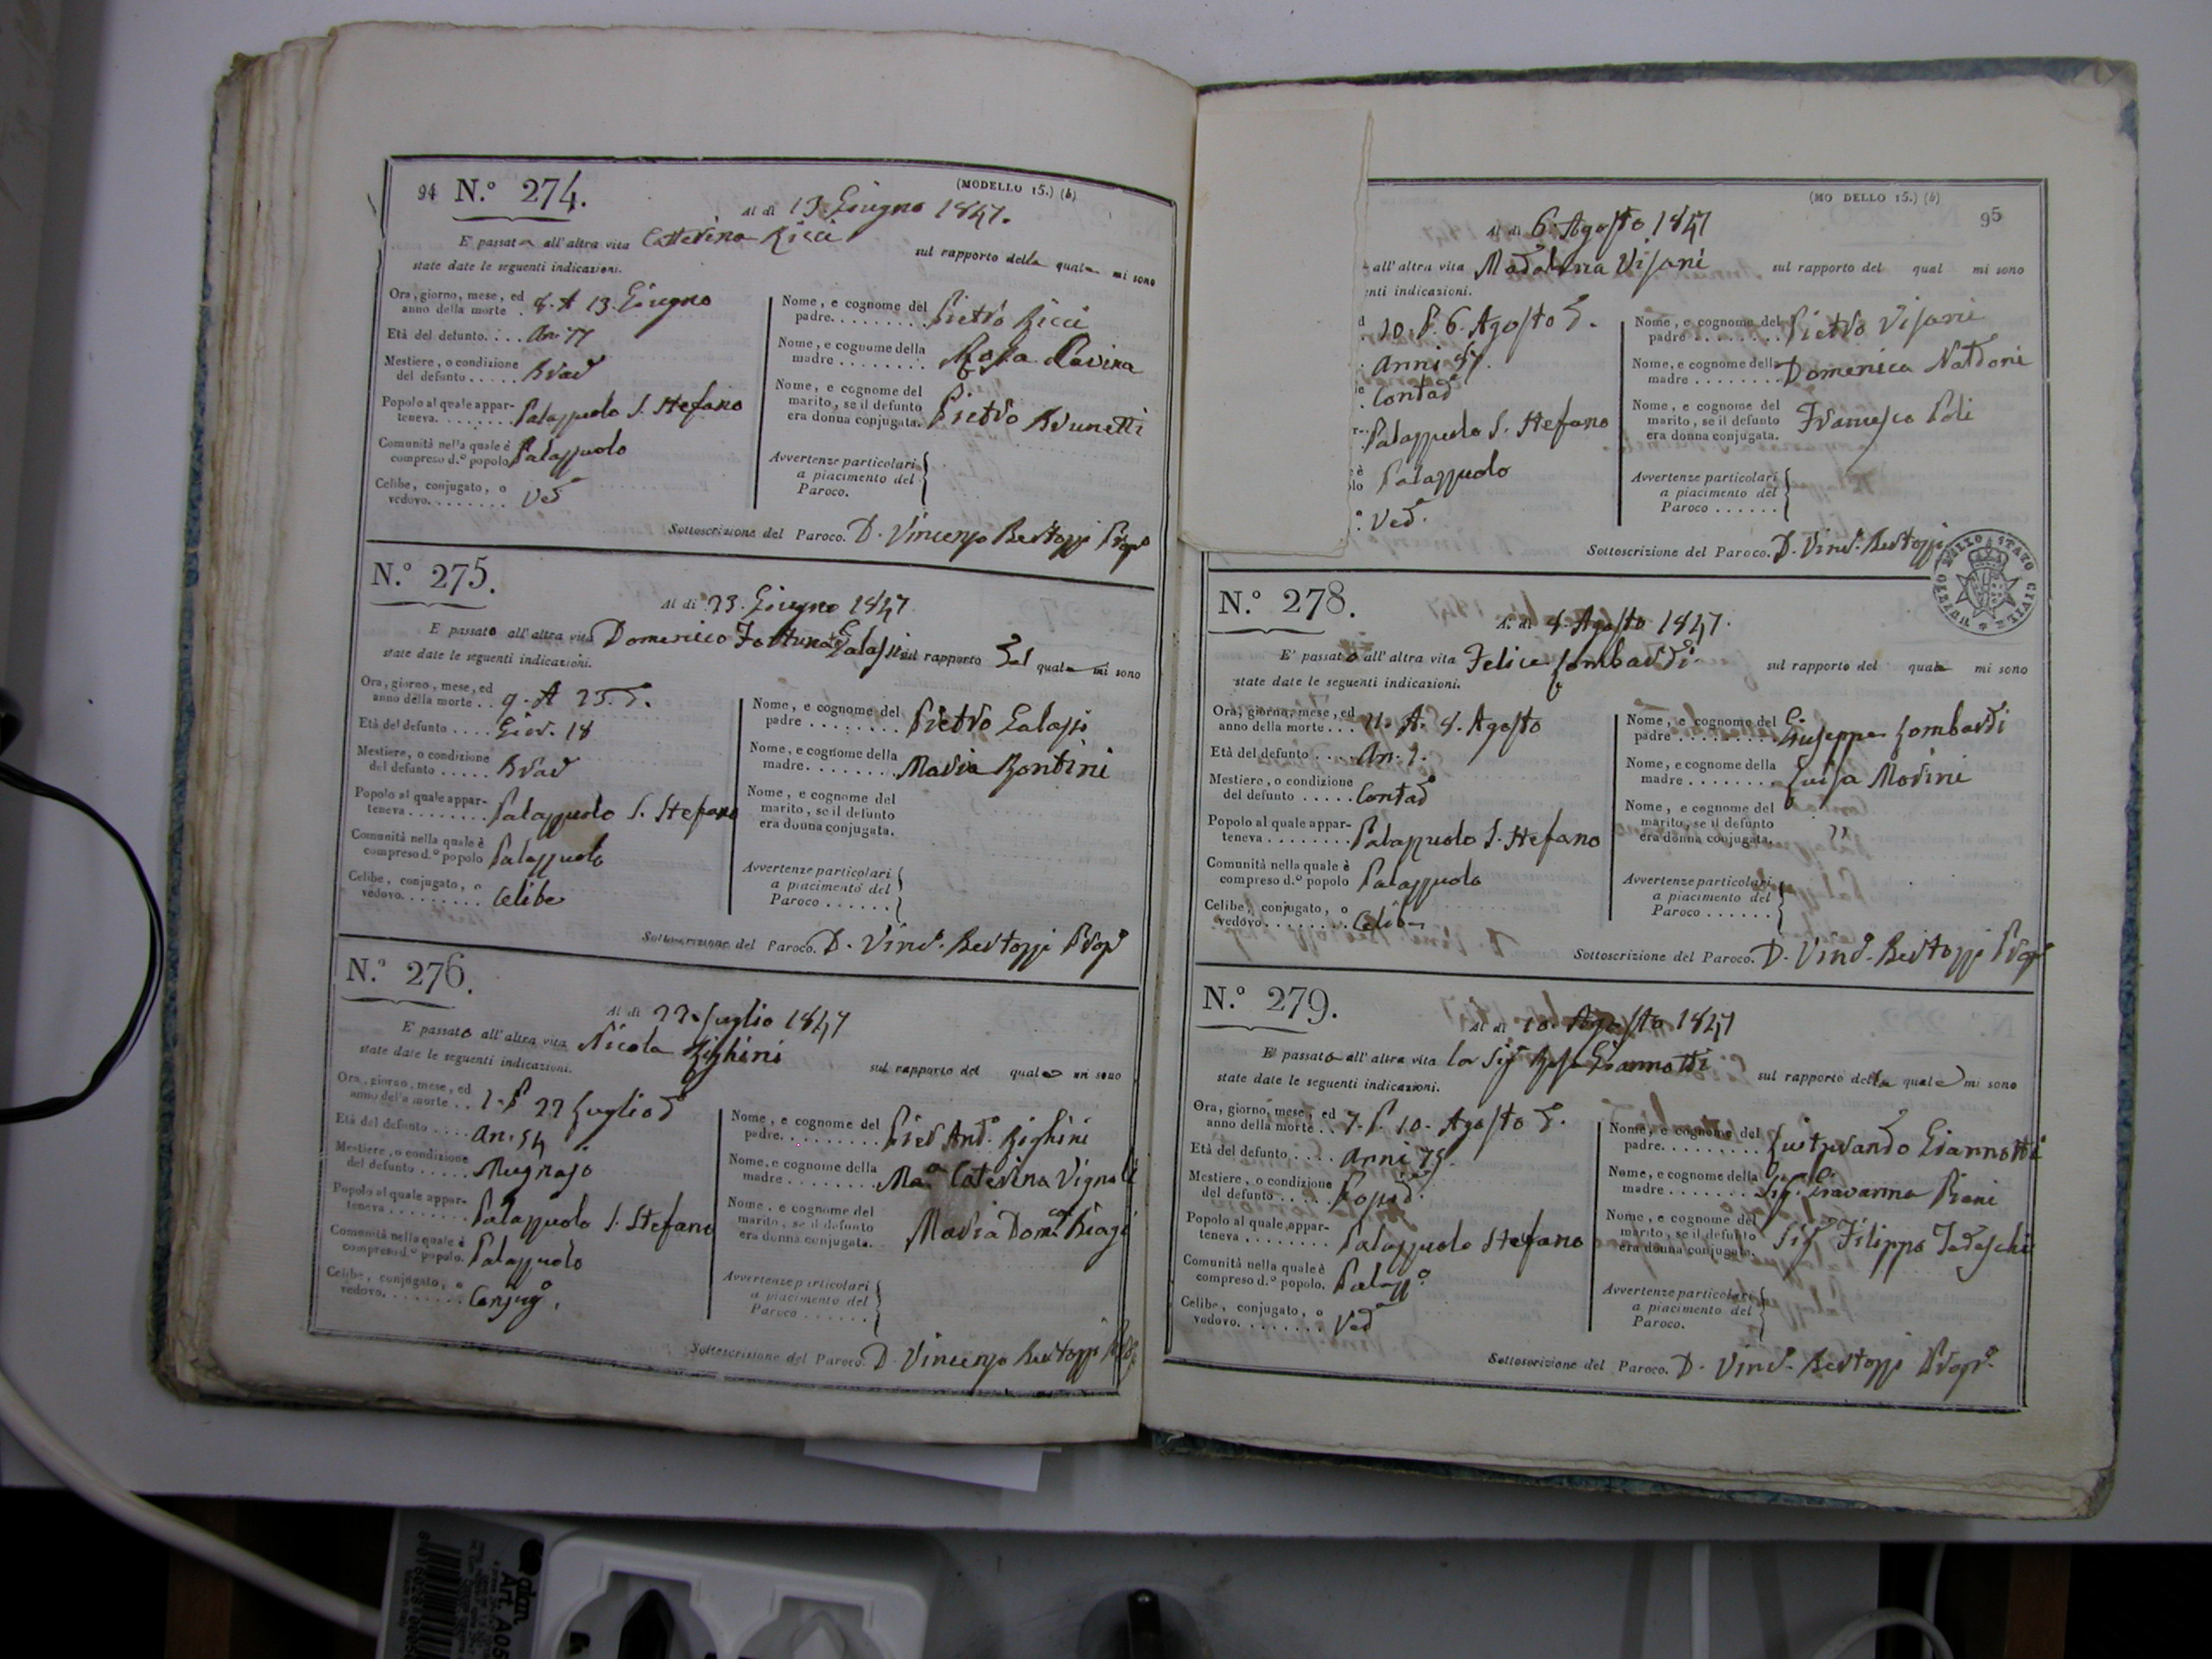 94 N.º 274. (MODELLO 15.) (b)
Al dì 13. Giugno 1847.
E' passata all'altra vita Catterina Ricci sul rapporto della quale mi sono
state date le seguenti indicazioni.
Ora, giorno, mese, ed
anno della morte . 8. A 13. Giugno
Età del defunto. . . . An: 77
Mestiere, o condizione
del defunto . . . . . Brac
Popolo al quale appar-
teneva. . . . . . . . Palazzuolo S. Stefano
Comunità nella quale è
compreso d.º popolo Palazzuolo
Celibe, conjugato, o
vedovo. . . . . . . . Ved
Nome, e cognome del
padre. . . . . . . . . Pietro Ricci
Nome, e cognome della
madre . . . . . . . . Rosa
Nome, e cognome del
marito, se il defunto
era donna conjugata. Pietro Brunetti
Avvertenze particolari
a piacimento del
Paroco.
Sottoscrizione del Paroco. D. Vincenzo Bertozzi Prop
N.º 275.
Al dì 23. Giugno 1847
E passato all'altra vita Domenico Fortunato Galassi sul rapporto del quale mi sono
state date le seguenti indicazioni.
Ora, giorno, mese, ed
anno della morte . . 9. A 23. d.
Età del defunto . . . . Gior. 18
Mestiere, o condizione
del defunto . . . . . Brac
Popolo al quale appar-
teneva . . . . . . . . Palazzuolo S. Stefano
Comunità nella quale è
compreso d.º popolo Palazzuolo
Celibe, conjugato, o
vedovo. . . . . . . . Celibe
Nome, e cognome del
padre . . . . . . . . Pietro Galassi
Nome, e cognome della
madre. . . . . . . . . Maria Bontini
Nome, e cognome del
marito, se il defunto
era donna conjugata.
Avvertenze particolari
a piacimento del
Paroco . . . . . .
Sottoscrizione del Paroco. D. Vinc. Bertozzi Prop
N.º 276.
Al dì 22. Luglio 1847
E passato all'altra vita Nicola Righini sul rapporto del quale mi sono
state date le seguenti indicazioni.
Ora, giorno, mese, ed
anno della morte . . 1. P 22 Luglio d
Età del defunto . . . . an: 54
Mestiere, o condizione
del defunto . . . . . Mugnajo
Popolo al quale appar-
teneva . . . . . . . . Palazzuolo S. Stefano
Comunità nella quale è
compreso d.º popolo. Palazzuolo
Celibe, conjugato, o
vedovo. . . . . . . . Conjug.
Nome, e cognome del
padre. . . . . . . . . Pier And. Righini
Nome, e cognome della
madre . . . . . . . . Ma. Caterina Vignoli
Nome, e cognome del
marito, se il defunto
era donna conjugata. Maria Dom.ca Biagi
Avvertenze particolari
a piacimento del
Paroco . . . . . .
Sottoscrizione del Paroco. D. Vincenzo Bertozzi Prop
(MODELLO 15.) (b) 95
Al dì 6. Agosto 1847
all'altra vita Madalena Visani sul rapporto del qual mi sono
enti indicazioni.
10. P. 6. Agosto d.
Anni
Contad
Palazzuolo S. Stefano
Palazzuolo
Ved.
Nome, e cognome del
padre . . . . . . . . Pietro Visani
Nome, e cognome della
madre . . . . . . . . Domenica Naldoni
Nome, e cognome del
marito, se il defunto
era donna conjugata. Francesco Poli
Avvertenze particolari
a piacimento del
Paroco . . . . . .
Sottoscrizione del Paroco. D. Vinc. Bertozzi
UFFIZIO DELLO STATO CIVILE
N.º 278.
Al dì 8. Agosto 1847.
E' passato all'altra vita Felice Lombardi sul rapporto del quale mi sono
state date le seguenti indicazioni.
Ora, giorno, mese, ed
anno della morte . . . 11. A. 8. Agosto
Età del defunto . . . . An. 1.
Mestiere, o condizione
del defunto . . . . . Contad
Popolo al quale appar-
teneva . . . . . . . . Palazzuolo S. Stefano
Comunità nella quale è
compreso d.º popolo Palazzuolo
Celibe, conjugato, o
vedovo. . . . . . . . Celibe
Nome, e cognome del
padre . . . . . . . . Giuseppe Lombardi
Nome, e cognome della
madre . . . . . . . . Luisa Modini
Nome, e cognome del
marito, se il defunto
era donna conjugata.
Avvertenze particolari
a piacimento del
Paroco . . . . . .
Sottoscrizione del Paroco. D. Vinc. Bertozzi Prop
N.º 279.
Al dì 10. Agosto 1847
E' passata all'altra vita la Sig Rosa Giannotti sul rapporto della quale mi sono
state date le seguenti indicazioni.
Ora, giorno, mese, ed
anno della morte . . 7. P. 10. Agosto d.
Età del defunto . . . . anni 75.
Mestiere, o condizione
del defunto . . . . . Possid.
Popolo al quale appar-
teneva . . . . . . . . Palazzuolo Stefano
Comunità nella quale è
compreso d.º popolo. Palazz.º
Celibe, conjugato, o
vedovo. . . . . . . . Ved
Nome, e cognome del
padre. . . . . . . . . Giannotti
Nome, e cognome della
madre . . . . . . . . Sig. Giovanna Piani
Nome, e cognome del
marito, se il defunto
era donna conjugata. Sig Filippo Tedeschi
Avvertenze particolari
a piacimento del
Paroco.
Sottoscrizione del Paroco. D. Vinc. Bertozzi Prop.
Art. A05